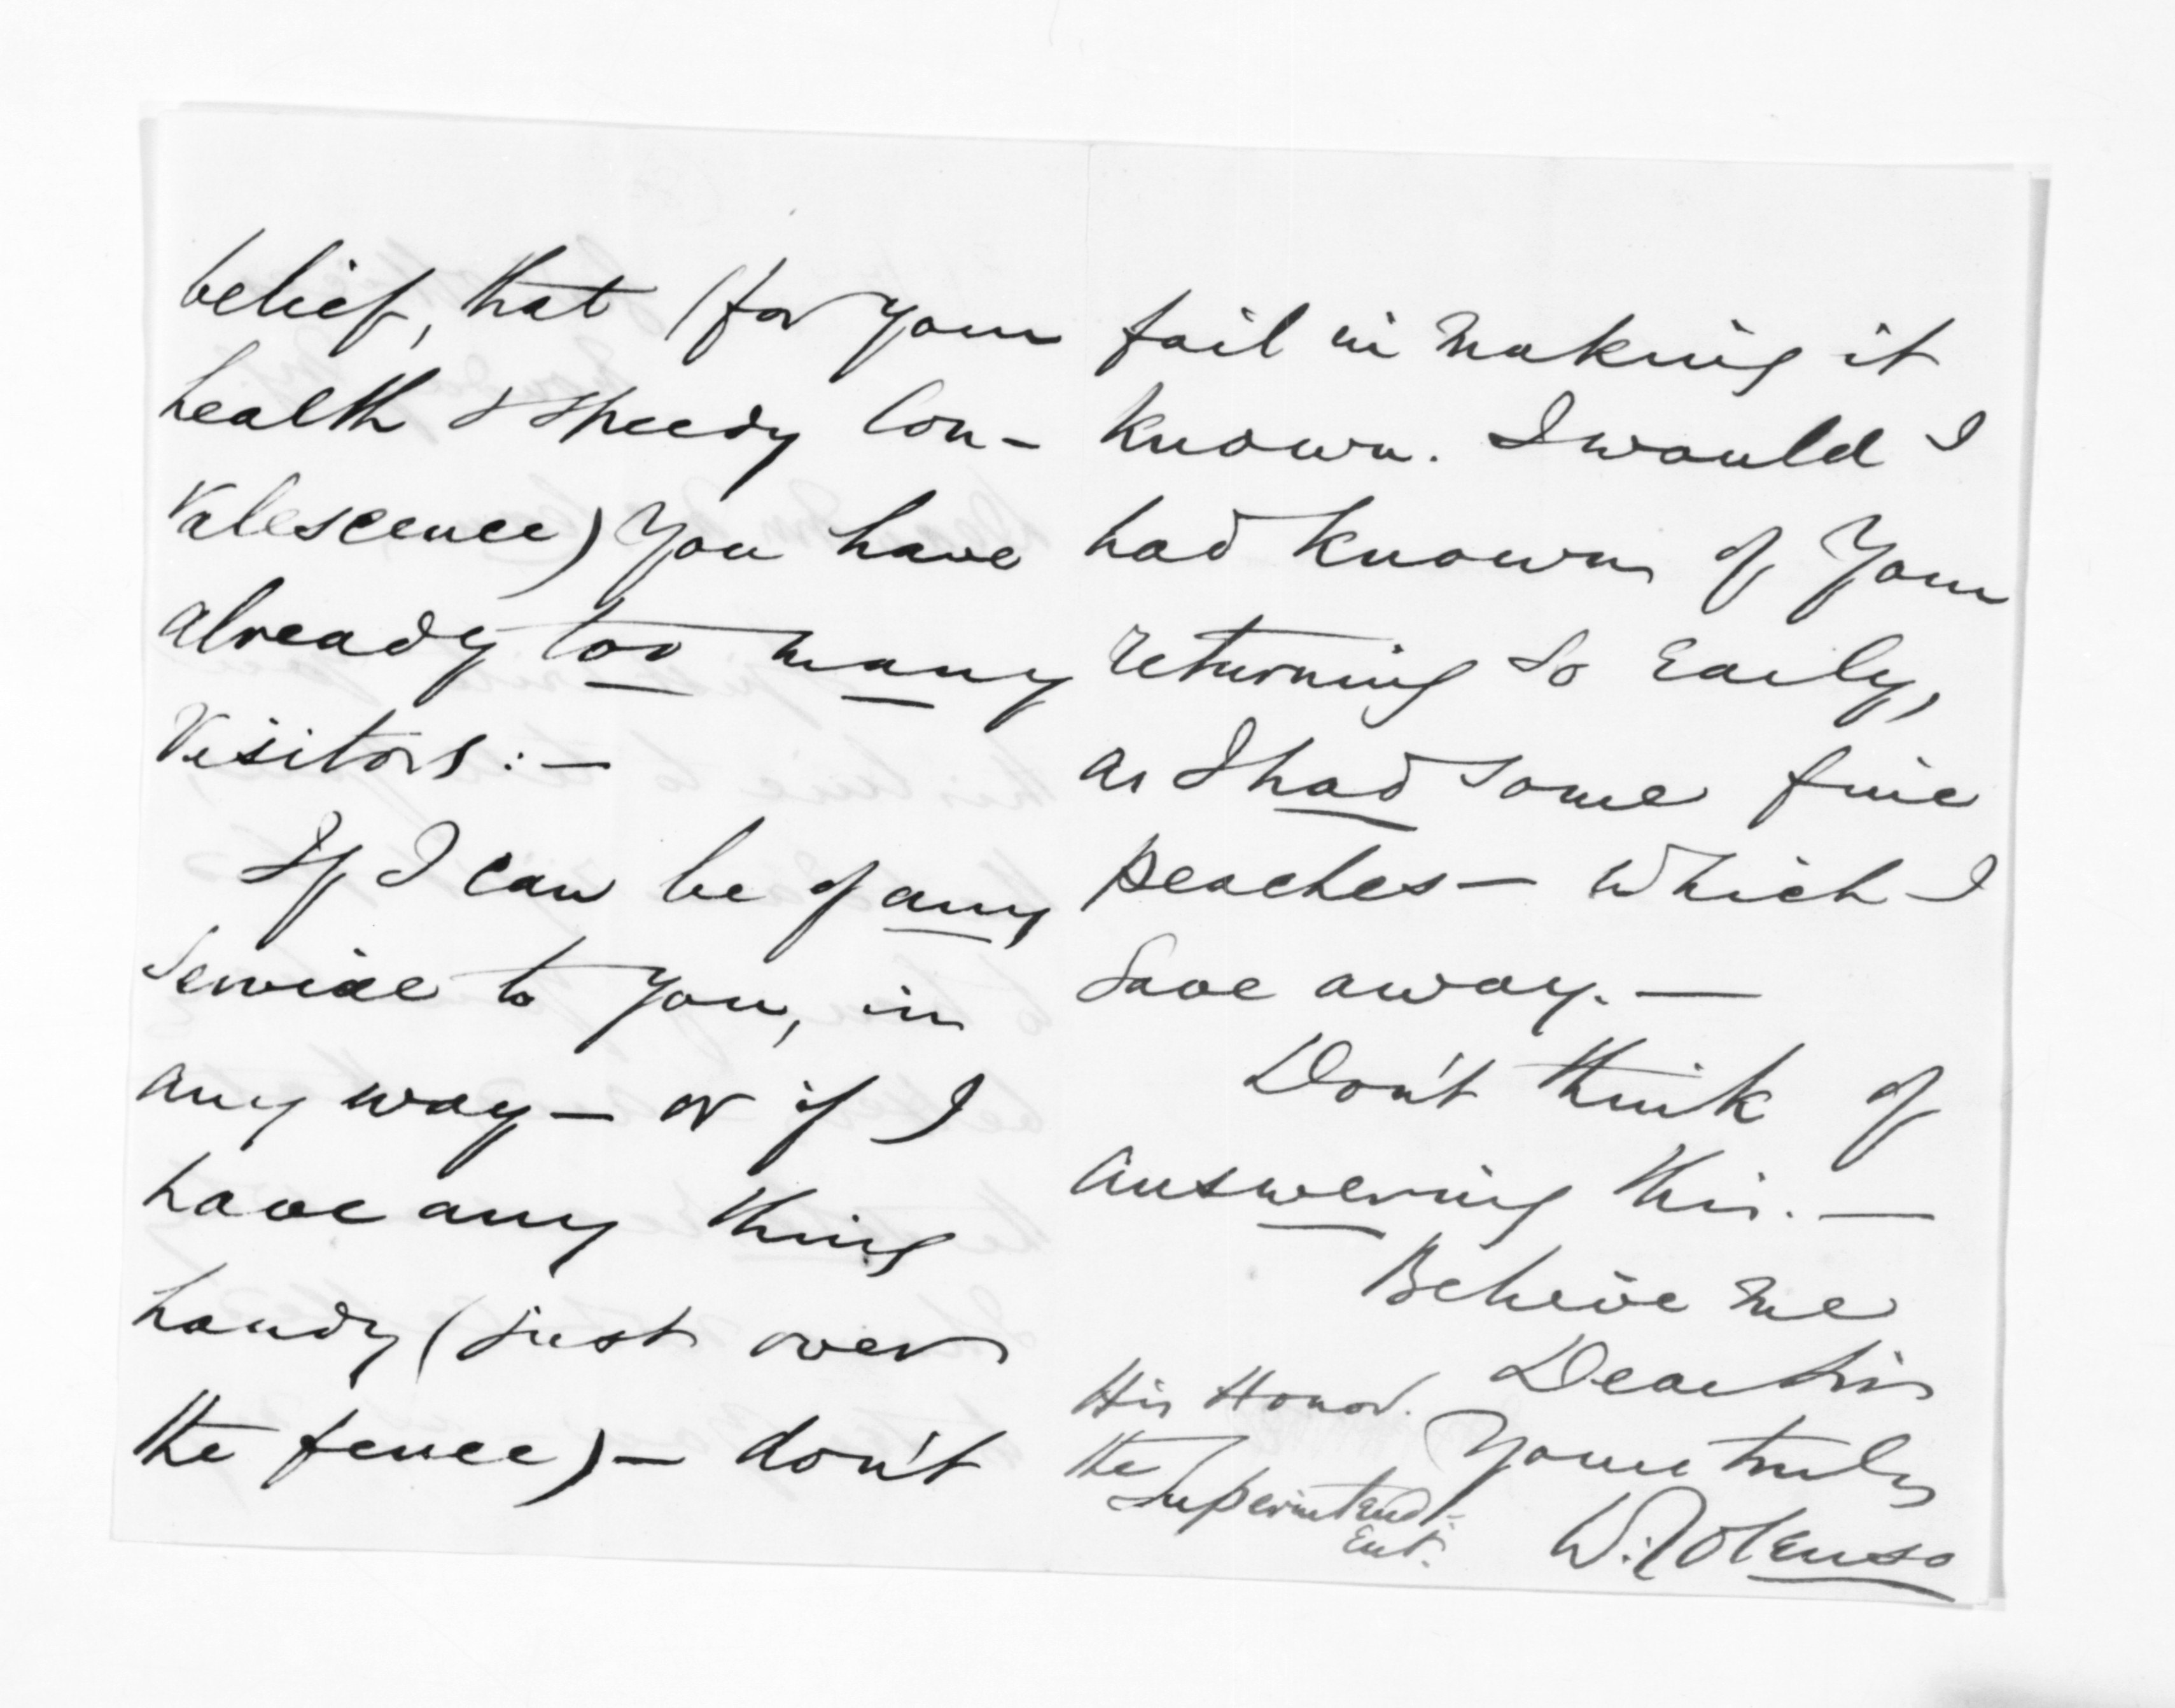 belief, that (for your
health & speedy Con-
valescence) you have
already too many
Visitors: —
If I can be of any
service to you, in
any way — or if I
have any thing
handy (just over
the fence) — don't
fail in making it
known. I would I
had known of your
returning so early,
as I had some fine
peaches — which I
gave away. —
Don't think of
answering this. —
Believe me
Dear Sir
Yours truly
W. Colenso
His Honor.
the
Superintend-
ent.